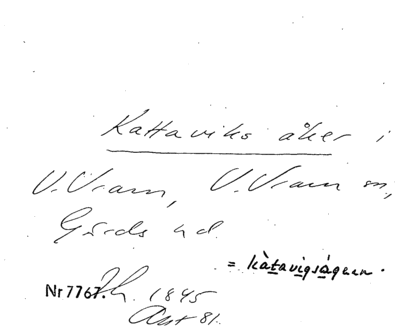 Kattaviks åker i
V. Vram, V. Vram sn,
Gärds hd.
= kàtavigságeren.
Nr 7767. Lh. 1845
Ant 81.